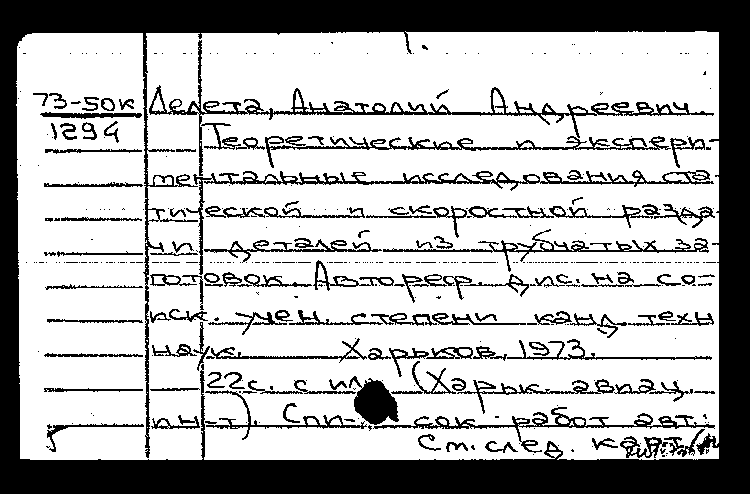 1.
73-50к Делета, Анатолий Андреевич.
1294 Теоретические и экспери-
ментальные исследования ста-
тической и скоростной разда-
чи деталей из трубчатых за-
готовок. Автореф. дис. на со-
иск. учен. степени канд. техн
наук. Харьков, 1973.
22с. с ил (Харьк. авиац.
ин-т). Спи- сок работ авт.:
См. след. карт.